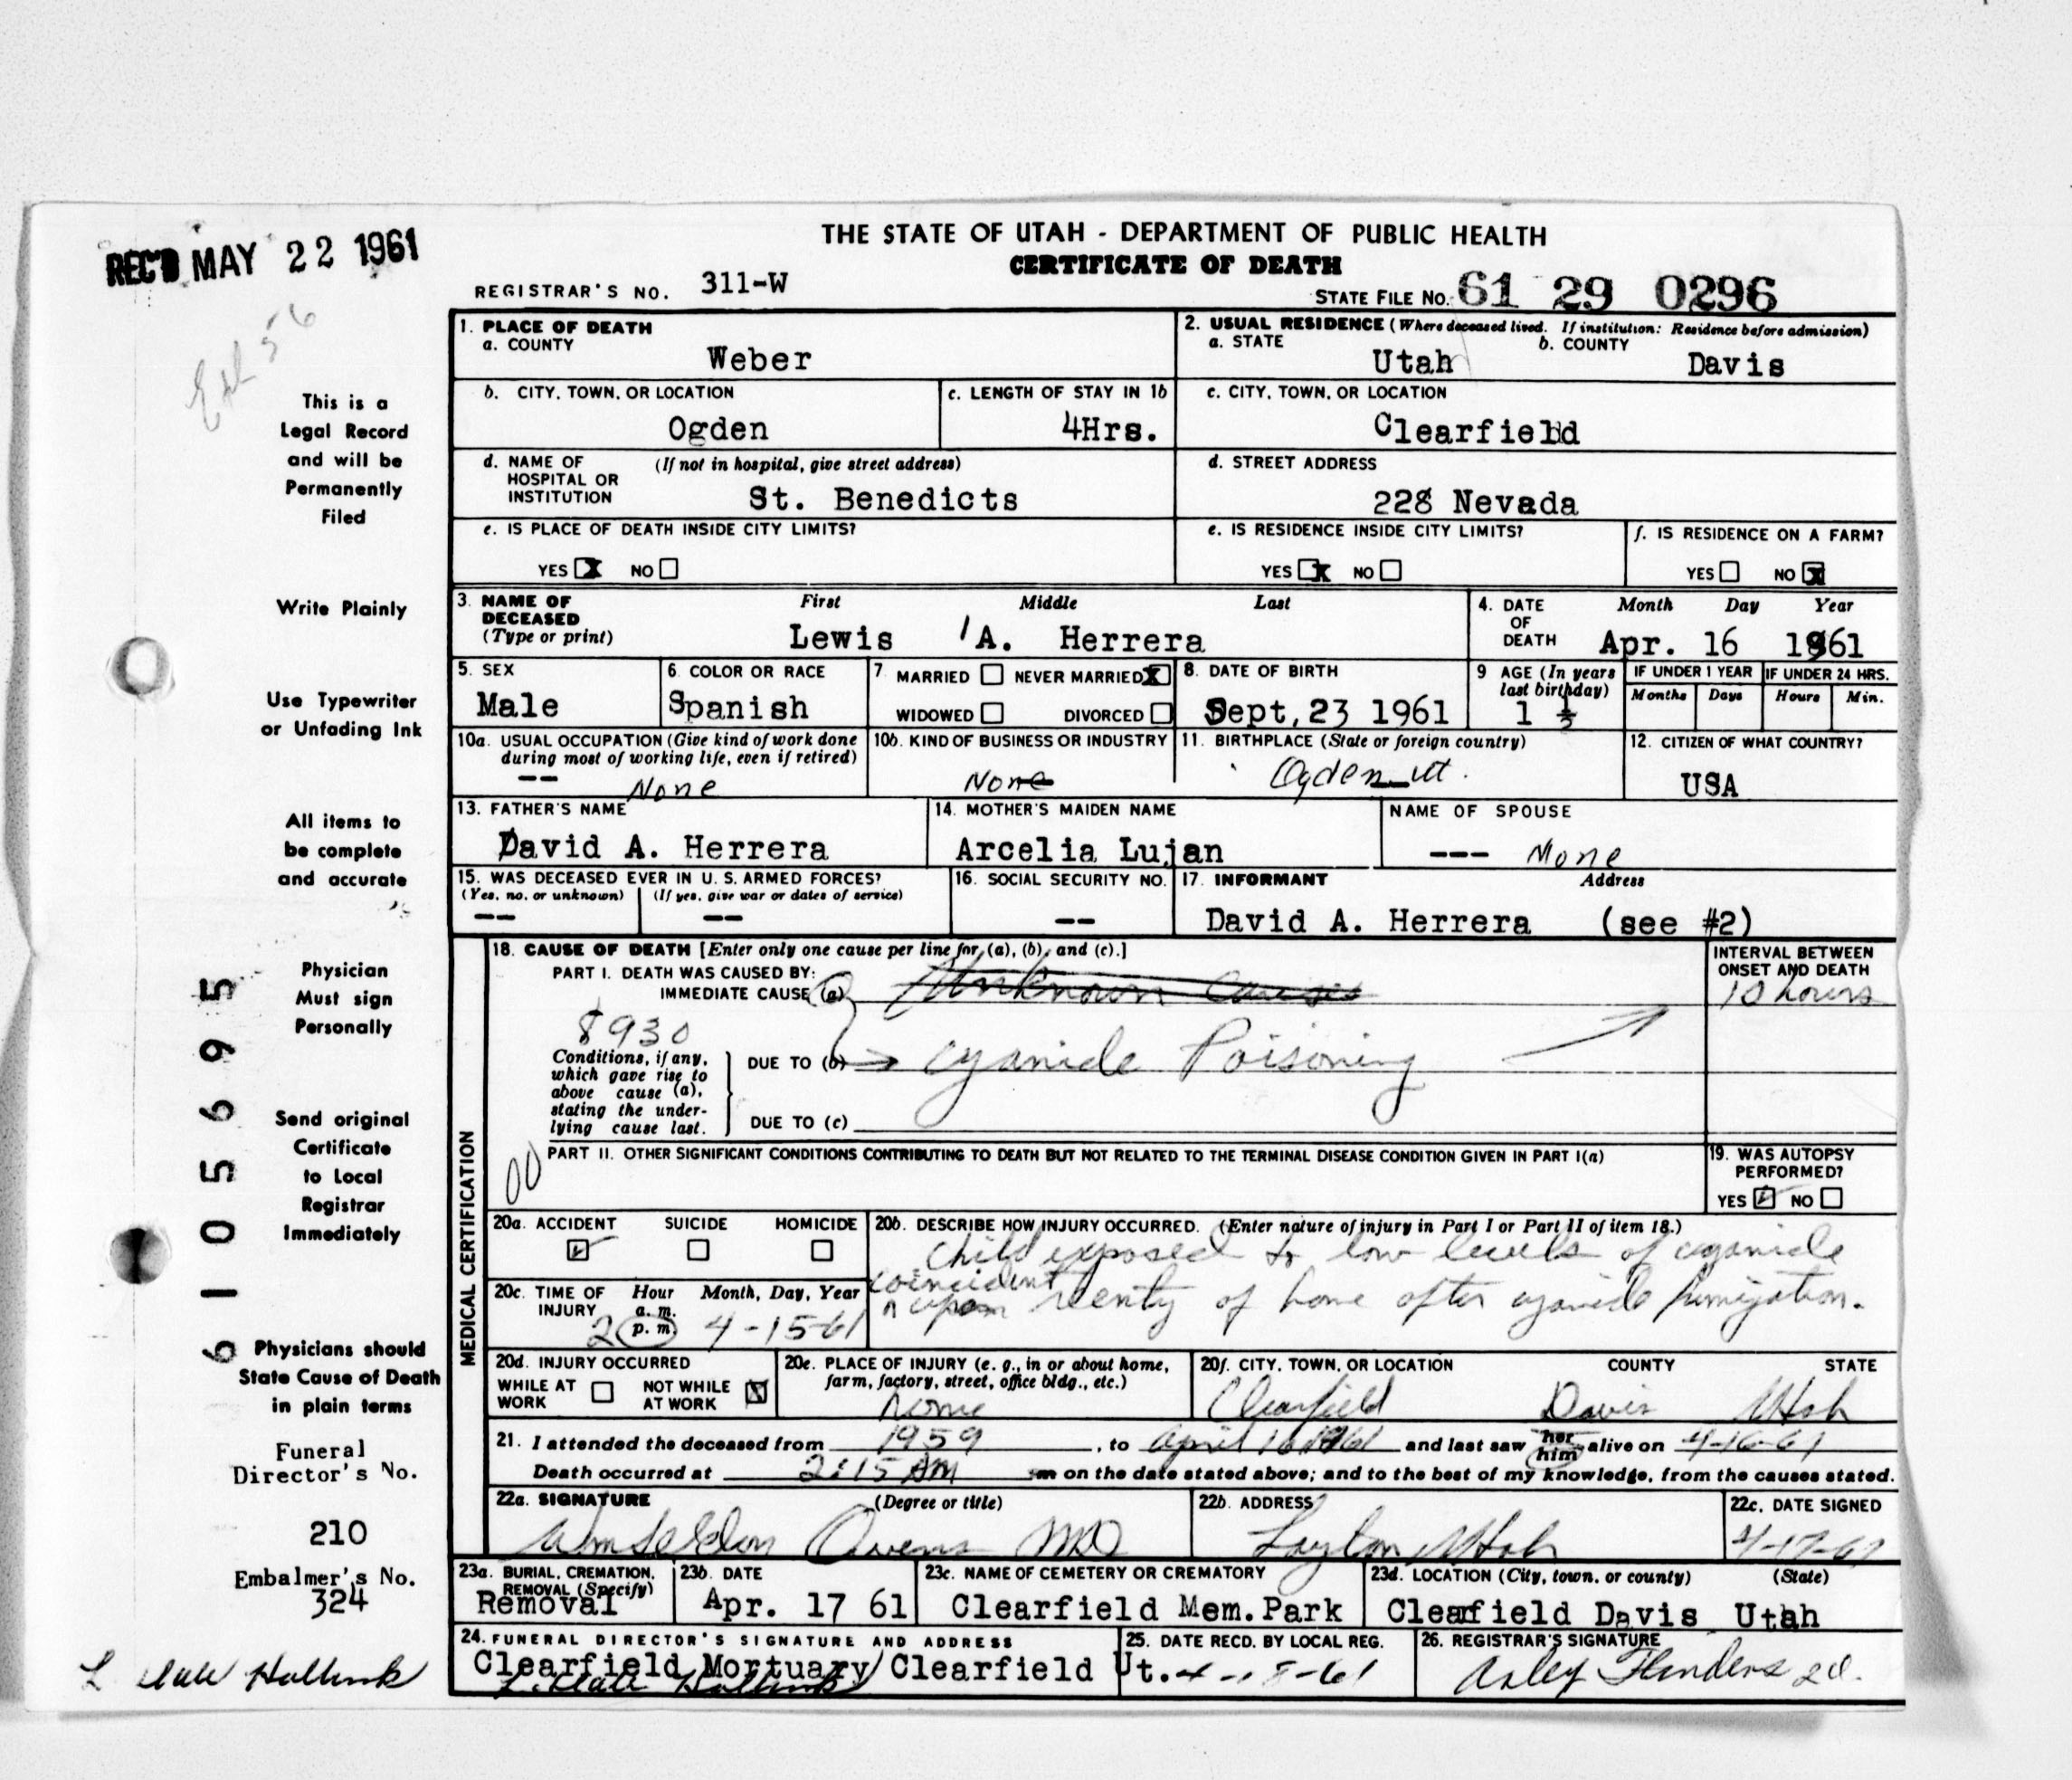 REC'D MAY 22 1961
THE STATE OF UTAH - DEPARTMENT OF PUBLIC HEALTH
CERTIFICATE OF DEATH
REGISTRAR'S NO. 311-W
STATE FILE NO. 61 29 0296
This is a
Legal Record
and will be
Permanently
Filed
Write Plainly
Use Typewriter
or Unfading Ink
All items to
be complete
and accurate
Physician
Must sign
Personally
Send original
Certificate
to Local
Registrar
Immediately
Physicians should
State Cause of Death
in plain terms
Funeral
Director's No.
210
Embalmer's No.
324
6105695
1. PLACE OF DEATH
a. COUNTY
Weber
2. USUAL RESIDENCE (Where deceased lived. If institution: Residence before admission)
a. STATE b. COUNTY
Utah Davis
b. CITY, TOWN, OR LOCATION
Ogden
c. LENGTH OF STAY IN 1b
4Hrs.
c. CITY, TOWN, OR LOCATION
Clearfield
d. NAME OF (If not in hospital, give street address)
HOSPITAL OR
INSTITUTION St. Benedicts
d. STREET ADDRESS
228 Nevada
e. IS PLACE OF DEATH INSIDE CITY LIMITS?
YES X NO
e. IS RESIDENCE INSIDE CITY LIMITS?
YES X NO
f. IS RESIDENCE ON A FARM?
YES NO X
3. NAME OF First Middle Last
DECEASED
(Type or print) Lewis A. Herrera
4. DATE Month Day Year
OF
DEATH Apr. 16 1961
5. SEX
Male
6. COLOR OR RACE
Spanish
7 MARRIED NEVER MARRIED X
WIDOWED DIVORCED
8. DATE OF BIRTH
Sept, 23 1961
9 AGE (In years
last birthday)
1
IF UNDER 1 YEAR IF UNDER 24 HRS.
Months Days Hours Min.
10a. USUAL OCCUPATION (Give kind of work done
during most of working life, even if retired)
-- None
10b. KIND OF BUSINESS OR INDUSTRY
None
11. BIRTHPLACE (State or foreign country)
Ogden Ut.
12. CITIZEN OF WHAT COUNTRY?
USA
13. FATHER'S NAME
David A. Herrera
14. MOTHER'S MAIDEN NAME
Arcelia Lujan
NAME OF SPOUSE
--- None
15. WAS DECEASED EVER IN U. S. ARMED FORCES?
(Yes, no, or unknown) (If yes, give war or dates of service)
-- --
16. SOCIAL SECURITY NO.
--
17. INFORMANT Address
David A. Herrera (see #2)
MEDICAL CERTIFICATION
18. CAUSE OF DEATH [Enter only one cause per line for (a), (b), and (c).]
PART I. DEATH WAS CAUSED BY:
IMMEDIATE CAUSE (a) Unknown Causes
INTERVAL BETWEEN
ONSET AND DEATH
10 hours
8930
Conditions, if any,
which gave rise to
above cause (a),
stating the under-
lying cause last.
DUE TO (b) Cyanide Poisoning
DUE TO (c)
00
PART II. OTHER SIGNIFICANT CONDITIONS CONTRIBUTING TO DEATH BUT NOT RELATED TO THE TERMINAL DISEASE CONDITION GIVEN IN PART I(a)
19. WAS AUTOPSY
PERFORMED?
YES NO
20a. ACCIDENT SUICIDE HOMICIDE
20b. DESCRIBE HOW INJURY OCCURRED. (Enter nature of injury in Part I or Part II of item 18.)
Child exposed to low levels of cyanide
coincident
upon reentry of home after cyanide fumigation.
20c. TIME OF Hour Month, Day, Year
INJURY a. m.
2 p. m. 4-15-61
20d. INJURY OCCURRED
WHILE AT WORK NOT WHILE AT WORK X
20e. PLACE OF INJURY (e. g., in or about home,
farm, factory, street, office bldg., etc.)
home
20f. CITY, TOWN, OR LOCATION COUNTY STATE
Clearfield Davis Utah
21. I attended the deceased from 1959, to April 16 1961 and last saw her him alive on 4-16-61
Death occurred at 2:15 AM m on the date stated above; and to the best of my knowledge, from the causes stated.
22a. SIGNATURE (Degree or title)
Owens MD
22b. ADDRESS
Layton Utah
22c. DATE SIGNED
4-17-61
23a. BURIAL, CREMATION,
REMOVAL (Specify)
Removal
23b. DATE
Apr. 17 61
23c. NAME OF CEMETERY OR CREMATORY
Clearfield Mem.Park
23d. LOCATION (City, town, or county) (State)
Clearfield Davis Utah
24. FUNERAL DIRECTOR'S SIGNATURE AND ADDRESS
Clearfield Mortuary Clearfield Ut.
25. DATE RECD. BY LOCAL REG.
26. REGISTRAR'S SIGNATURE